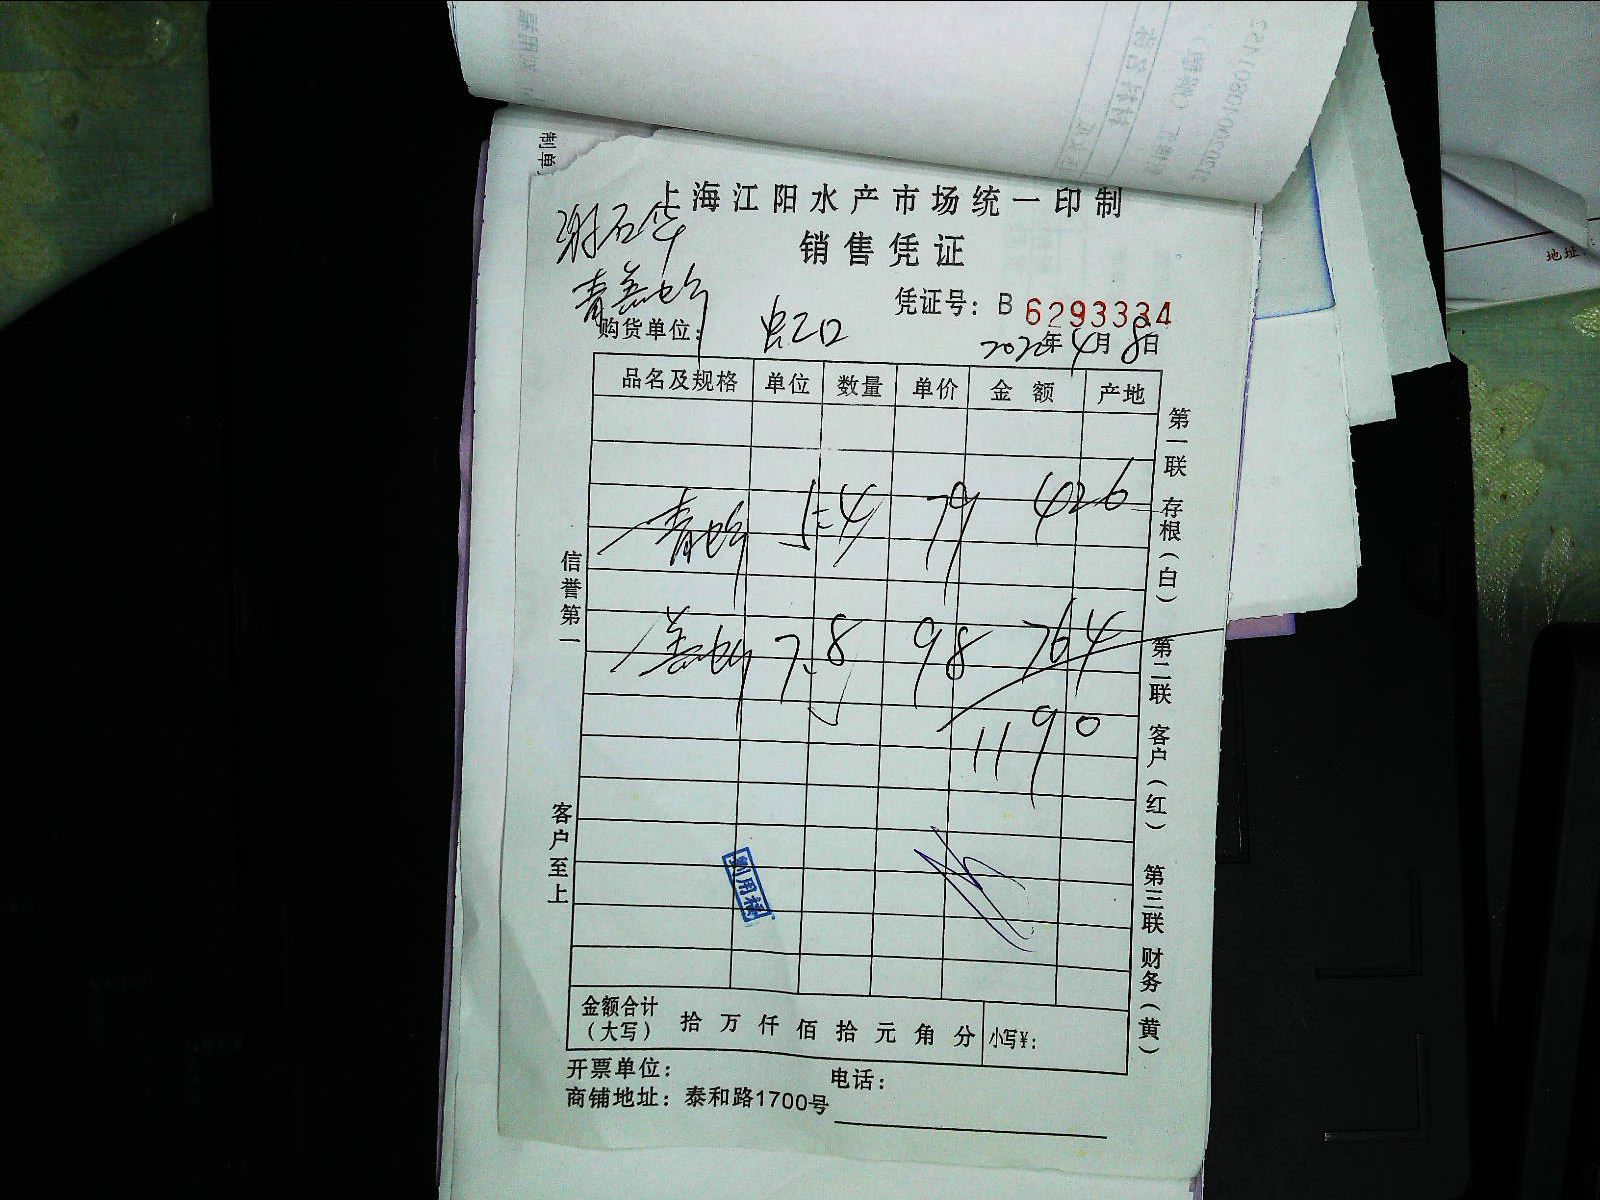 制单
上海江阳水产市场统一印制
销售凭证
谢石华
凭证号：B 6293334
购货单位： 虹口
2020年4月8日
品名及规格 单位 数量 单价 金 额 产地
5.4 79 426
7.8 98 764
1190
信誉第一
客户至上
第一联 存根（白） 第二联 客户（红） 第三联 财务（黄）
金额合计（大写） 拾 万 仟 佰 拾 元 角 分 小写¥：
开票单位： 电话：
商铺地址：泰和路1700号
地址